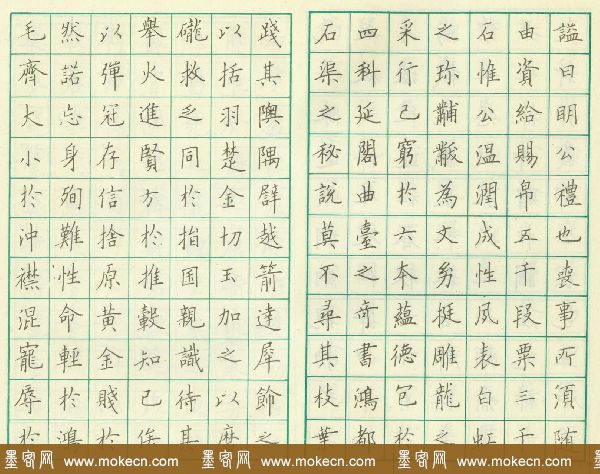 諡曰明公禮也喪事所須随
由資給賜帛五千段粟三千
石惟公温潤成性風表白虹
之珎黼黻為文挺雕龍之
采行己窮於六本蘊德包於
四科延閣曲臺之奇書鴻都
石渠之秘說莫不尋其枝葉
踐其隩隅譬越箭達犀飾之
以括羽楚金切玉加之以磨
礲救乏同於指囷親識待其
舉火進賢方於推轂知己俟
以彈冠存信捨原黄金賤於
然諾忘身殉難性命輕於鴻
毛齊大小於沖襟混寵辱於
墨客网 www.mokecn.com 墨客网 www.mokecn.com 墨客网 www.mokecn.com